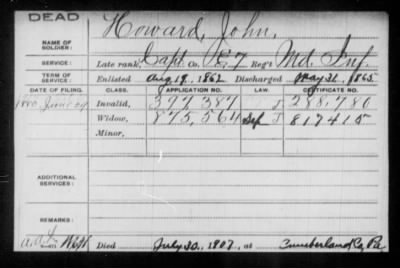 DEAD
Howard, John,
NAME OF SOLDIER:
SERVICE: Late rank, Capt. Co. E, 7 Reg't Md. Inf.
TERM OF SERVICE: Enlisted Aug. 19, 1862 Discharged May 31, 1865
DATE OF FILING. CLASS. APPLICATION NO. LAW. CERTIFICATE NO.
1880 June Invalid, 397,387 J 288,780
Widow, 875,564 J 817415
Minor,
ADDITIONAL SERVICES:
REMARKS:
Died July 30, 1907, at Cumberland Co, Pa